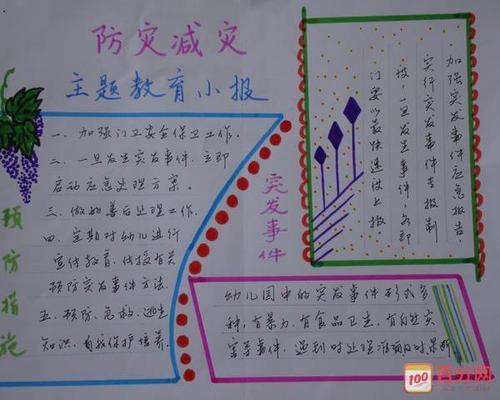 防灾减灾
主题教育小报
预防措施
一、加强门卫安全保卫工作.
二、一旦发生突发事件，立即
启动应急处理方案。
三、做好善后处理工作.
四、定期对幼儿进行
宣传教育，传授有关
预防突发事件方法.
五、预防、急救、逃生
知识、自我保护培养.
突发事件
加强突发事件应急报告，
实行突发事件专报制
度，一旦发生事件，各部
门要以最快速度上报。
幼儿园中的突发事件形式多
种，有暴力、有食品卫生、有自然灾
害等事件，遇到时处理
百分网